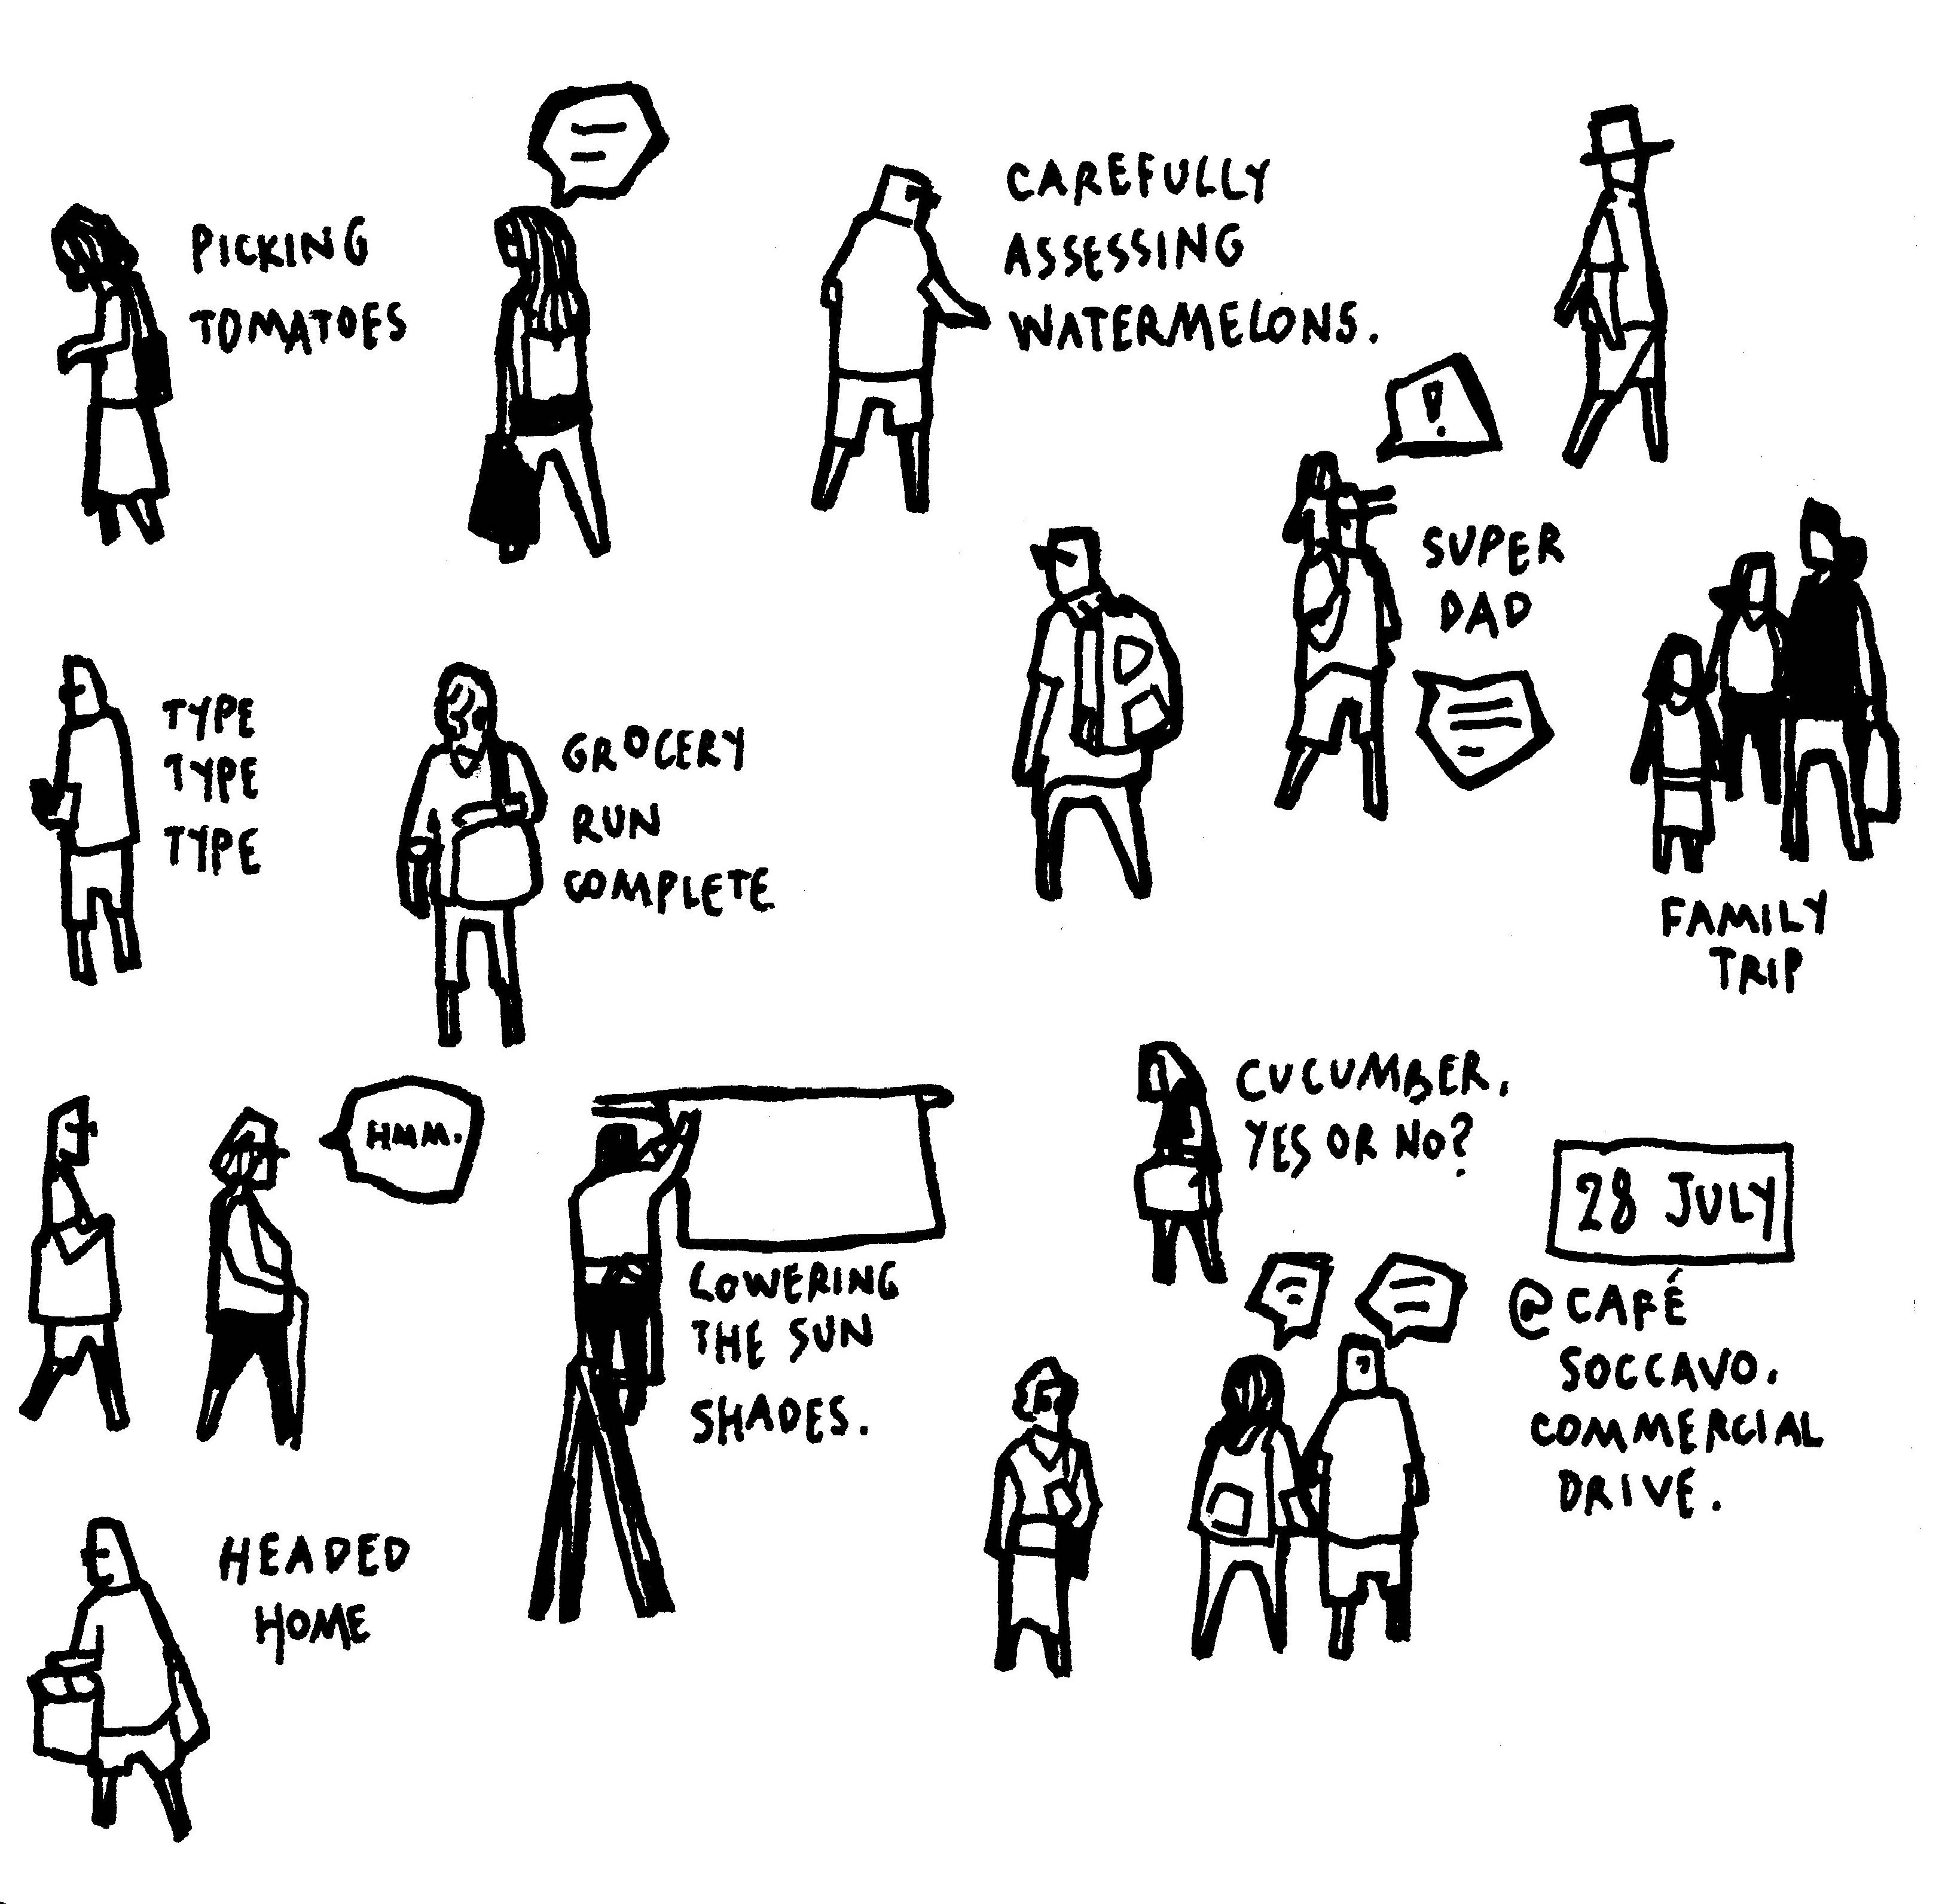 PICKING
TOMATOES
CAREFULLY
ASSESSING
WATERMELONS.
!
SUPER
DAD
TYPE
TYPE
TYPE
GROCERY
RUN
COMPLETE
FAMILY
TRIP
HMM.
LOWERING
THE SUN
SHADES.
CUCUMBER.
YES OR NO?
28 JULY
@CAFÉ
SOCCAVO.
COMMERCIAL
DRIVE.
HEADED
HOME